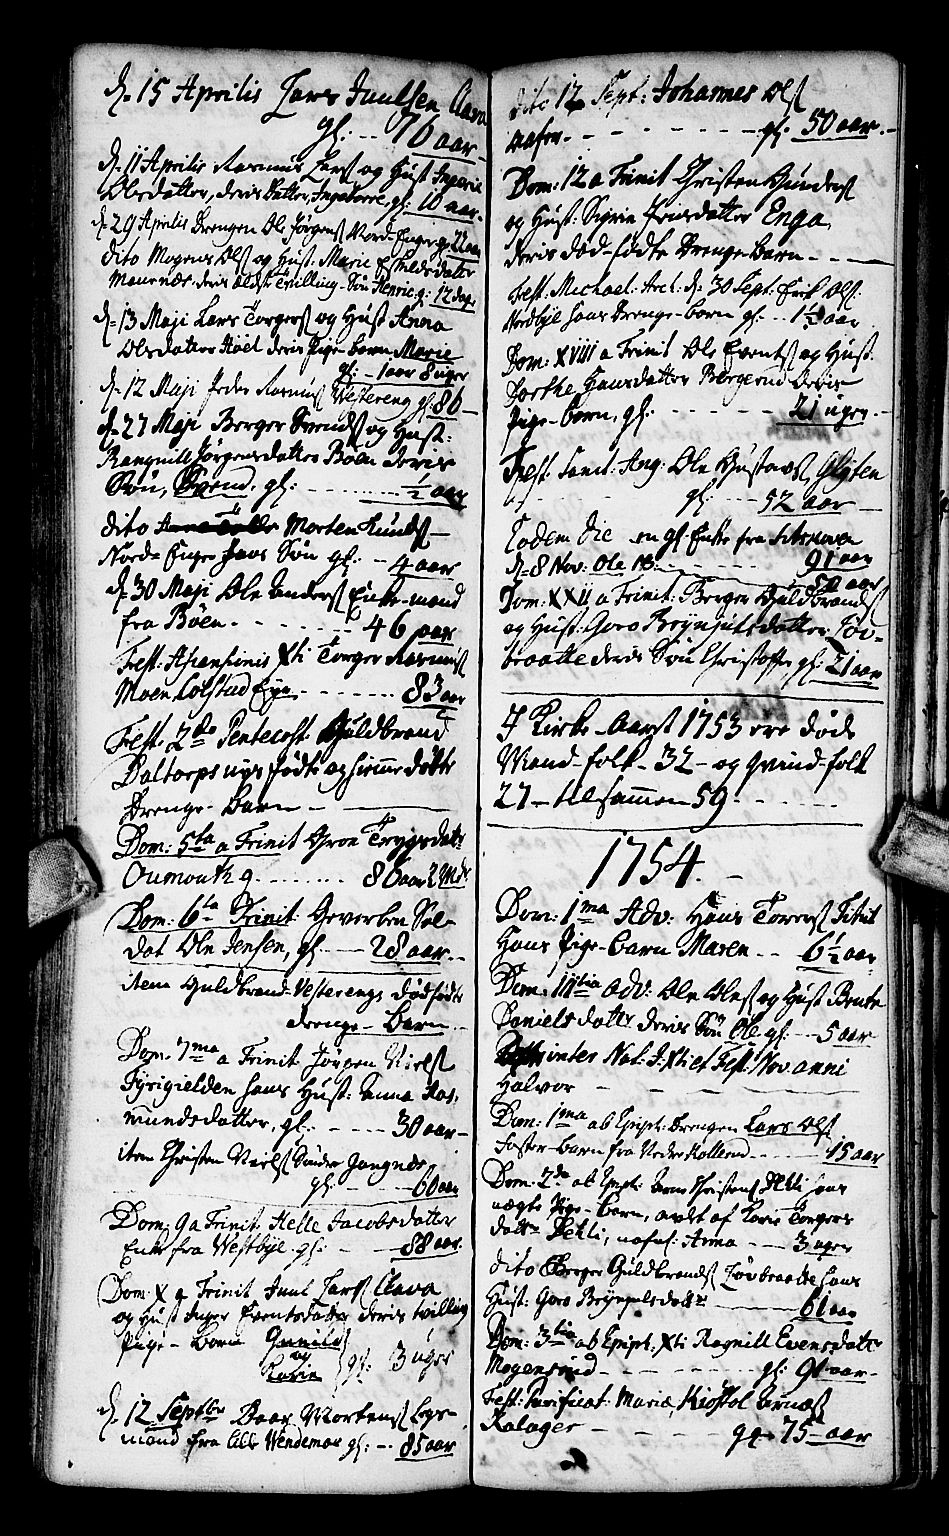 d. 15 Aprilis Lars Juulsen Clava
gl. -- 76 aar
d. 11 Aprilis Rasmus Larss og Hust Ingerie
Olsdatter, deris datter, Ingeborre, gl. 10 aar.
d. 29 Aprilis Drengen Ole Jörgens Nord-Enger gl. 22 aar
dito Mogens Ols og Hust: Marie
deris ældste Tvilling-Sön Henric g: 12 dage
d. 13 Maji Lars Torgers og Hust Anna
Olsdatter Höel deris Pige-barn Marie
gl. - 1 aar 8 uger
d. 12 Maji Peder Rasmus Westereng gl: 80 -
d. 27 Maji Berger Svends og Hust:
Ranguill Jörgensdatter Böen deris
Sön, Svend, gl: - - - ½ aar
dito Morten Knuds
Nord-Enger hans Sön gl: -- 4 aar
d. 30 Maji Ole Anders Enke-mand
fra Böen - - - 46 aar
Fest: Ascensionis Xti Torger Rasmus
Moen Colstad Eye - - - 83 aar
Fest: 2de Pentecost Guldbrand
Daltorps nys födte og hiemme döbte
Drenge-barn -
Dom: 5ta a Trinit Gron Trygsdatr
g. - - - 86 aar 2 Mdr
Dom: 6ta Trinit. Geverben Sol-
dat Ole Jensen, gl. - 28 aar.
item Guldbrand Vesterengs dödfödte
drenge-barn.
Dom 7ma a Trinit Jörgen Niels
Fyrigielden hans Hust: Anna Ras-
mundsdatter, gl: - - - 30 aar
item Christen Niels Sönder
gl. - - - 60 aar
Dom: 9 a Trinit. Helle Jacobsdatter
Enke fra Westbye. gl: - - 88 aar.
Dom: X a Trinit Juul Lars Clava
og Hust Inger Evensdatter deris tvilling
Pige-börn Gunild
og
Karin gl: 3 uger
d. 12 Septbr Baar Mortens Legs-
mand fra lille Wendemor gl: -- 85 aar
dito 12 Sept: Johannes Ols
- - - gl: 50 aar.
Dom: 12 a Trinit Christen Gunders
og Hust. Sigrie Friisdatter Enga
deris död-födte Drenge-barn
Fest. Michael: Arch: d. 30 Sept: Erik Ols:
Nordbye hans Drenge-barn gl: -- 1½ aar
Dom: XVIII a Trinit Ole Events og Hust.
Dorthe Hansdatter Bergerud deris
Pige-barn, gl: - - - 21 uger
Fest: Sanct: Ang: Ole Gustavs,
gl: - - - 52 aar
Eodem die en gl Enke fra
91 aar
d. 8 Nov: Ole - - - 50 aar
Dom: XXII a Trinit: Berger Guldbrands
og Hust: Goro Brynjulsdatter, Löv-
braatte deris Sön Christoffer, gl: 21 aar
I Kirke-Aaret 1753 ere döde
Mand-folk - 32 - og qvind-folk
27 - tilsammen 59.
1754.
Dom: 1ma Adv: Hans Torers
Hans Pige-barn Maren -- 6½ aar
Dom: IIItia Adv: Ole Ols og Hust Bente
Danielsdatter deris Sön Ole gl: - 5 aar
inter Nat. J. Xti et Fest: Nov: anni
Halvor
Dom: 1ma ab Epiph: Drengen Lars Ols
foster-barn fra Nedre Kollerud - - 15 aar
Dom: 2da ab Epiph: Arne Christens Dehli hans
uægte Pige-barn, avlet af Karie Torgers
datr Dehli, nafnl: Anna - - 3 uger
dito Berger Guldbrands Lövbraatte hans
Hust: Goro Bryngelsdatter - - 61 aar
Dom: 3tia ab Epiph: Xti Ragnill Evensdatr
Mogensrud - - - gl: 91 aar.
Fest: Purificat: Mariæ, Kiostol Arnes
Kalager - - - gl. 75 - aar